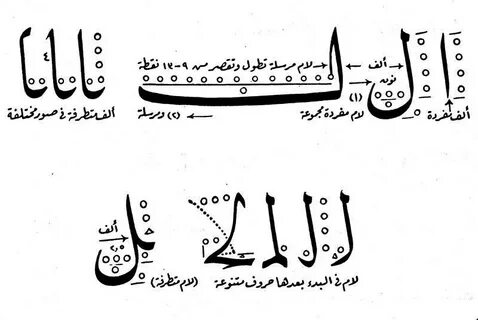 ألف
لام مرسلة تطول وتقصر من ٩-١٣ نقطة
نون
(١)
ألف مفردة
لام مفردة مجموعة
(٢) ومرسلة
ألف متطرفة في صور مختلفة
ألف
لام في البدء بعدها حروف متنوعة
(لام متطرفة)